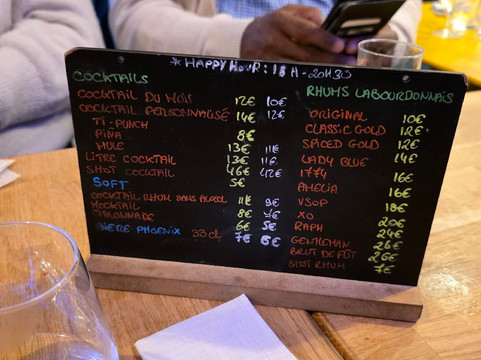 * HAPPY HOUR : 18H - 20H30
COCKTAILS
COCKTAIL DU MOIS 12€ 10€
COCKTAIL PERSONNALISÉ 14€ 12€
TI-PUNCH 8€
PINA 13€ 11€
MULE 13€ 11€
LITRE COCKTAIL 46€ 42€
SHOT COCKTAIL 5€
SOFT
COCKTAIL RHUM SANS ALCOOL 11€ 9€
MOCKTAIL 8€
CITRONNADE 6€ 5€
BIÈRE PHOENIX 33cl 7€ 6€
RHUMS LABOURDONNAIS
ORIGINAL 10€
CLASSIC GOLD 12€
SPICED GOLD 12€
LADY BLUE 14€
1774 16€
AMELIA 16€
VSOP 18€
XO 20€
RAPH 24€
GENTLEMAN 26€
BRUT DE FÛT 26€
SHOT RHUM 7€